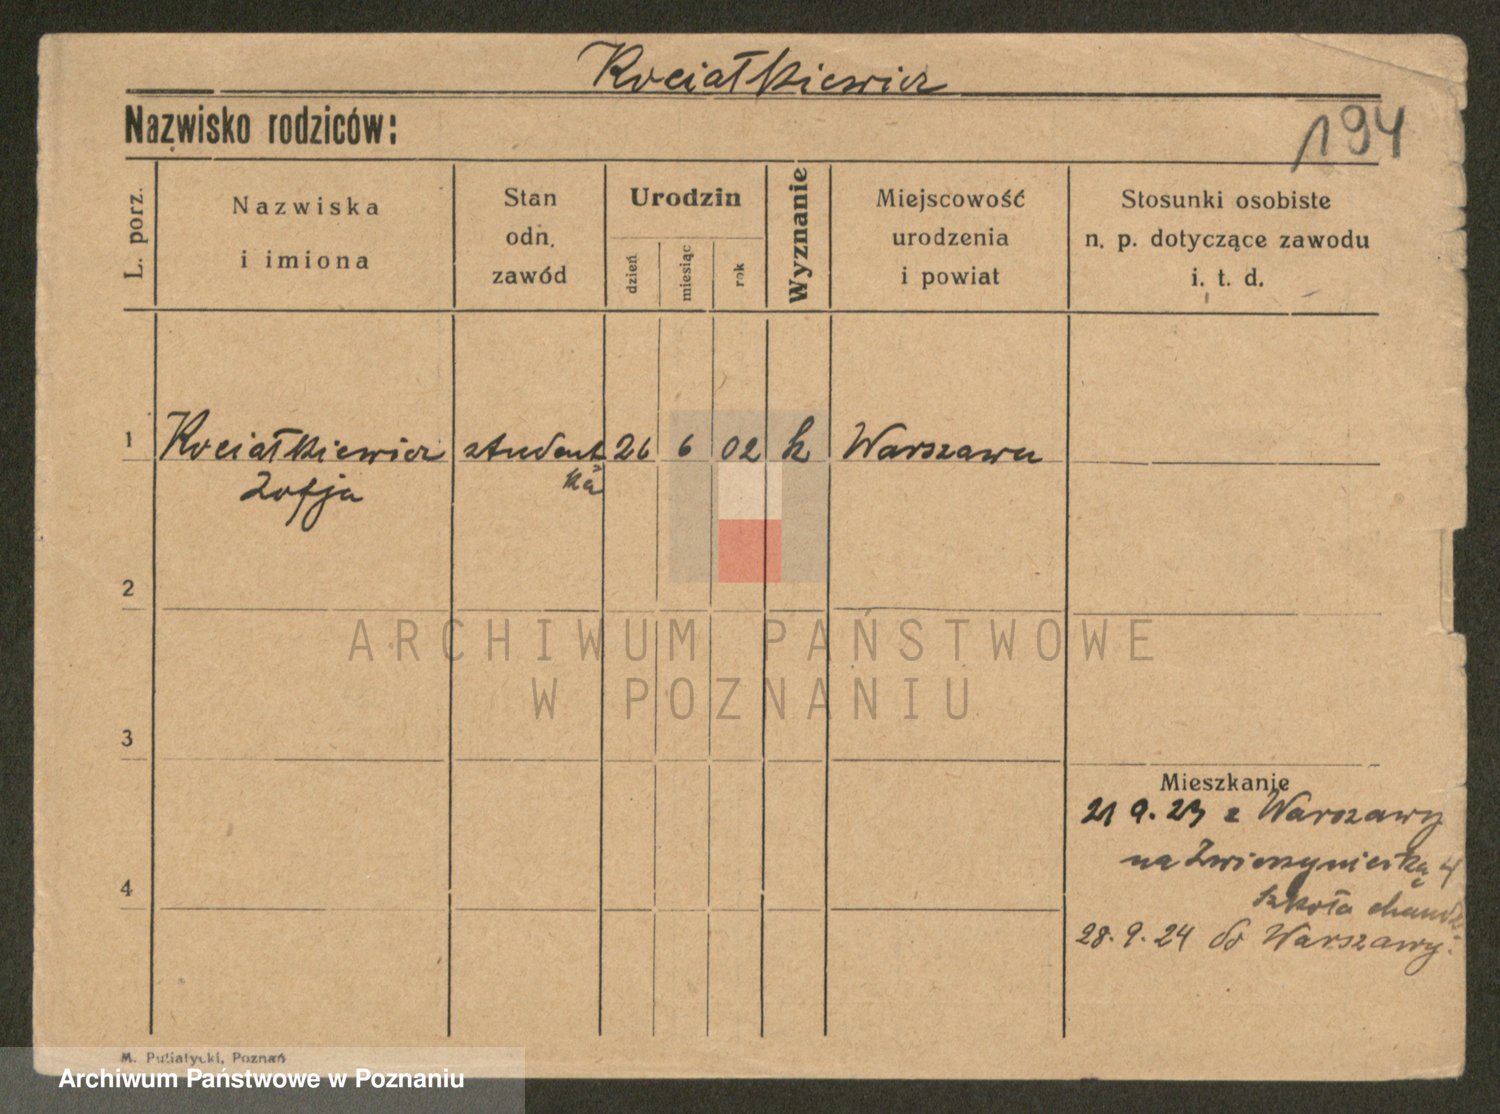 Kociałkiewicz
Nazwisko rodziców:
194
L. porz.
Nazwiska
i imiona
Stan
odn.
zawód
Urodzin
dzień
miesiąc
rok
Wyznanie
Miejscowość
urodzenia
i powiat
Stosunki osobiste
n. p. dotyczące zawodu
i. t. d.
1 Kociałkiewicz student 26 6 02 k Warszawa
Zofja ka
2
ARCHIWUM PAŃSTWOWE
W POZNANIU
3
Mieszkanie
21 9. 23 z Warszawy
na Zwierzyniecką 4
Szkoła
4
28. 9. 24 do Warszawy.
M. Putiatycki, Poznań
Archiwum Państwowe w Poznaniu